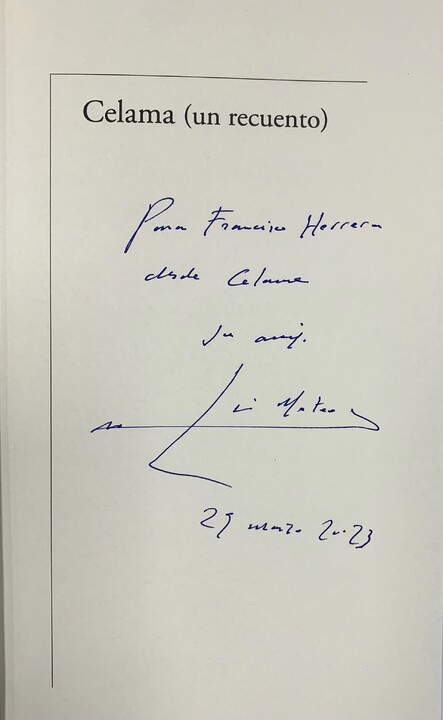 Celama (un recuento)
Para Francisco Herrera
desde Celama
su amig.
Luis Mateo
29 marzo 2023